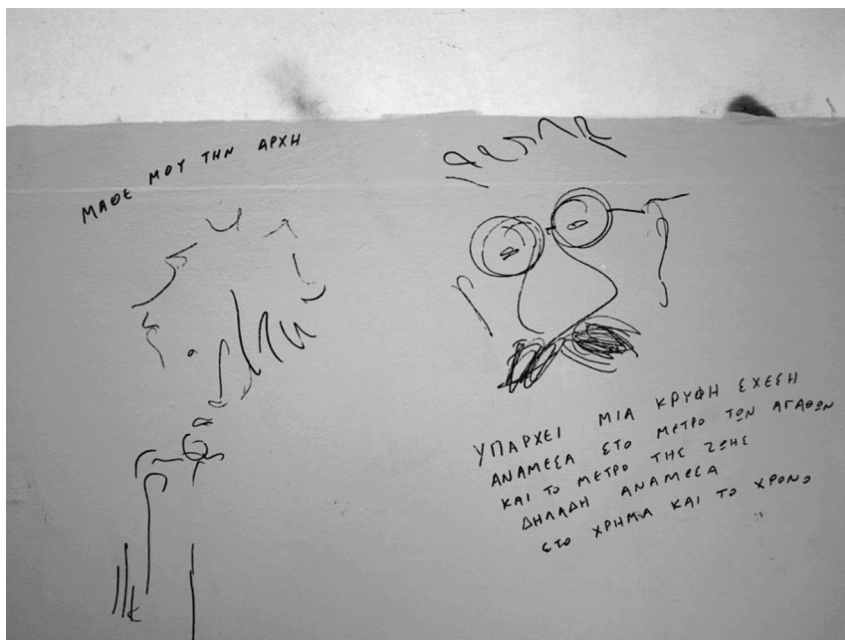 ΜΑΘΕ ΜΟΥ ΤΗΝ ΑΡΧΗ
ΥΠΑΡΧΕΙ ΜΙΑ ΚΡΥΦΗ ΣΧΕΣΗ
ΑΝΑΜΕΣΑ ΣΤΟ ΜΕΤΡΟ ΤΩΝ ΑΓΑΘΩΝ
ΚΑΙ ΤΟ ΜΕΤΡΟ ΤΗΣ ΖΩΗΣ
ΔΗΛΑΔΗ ΑΝΑΜΕΣΑ
ΣΤΟ ΧΡΗΜΑ ΚΑΙ ΤΟ ΧΡΟΝΟ